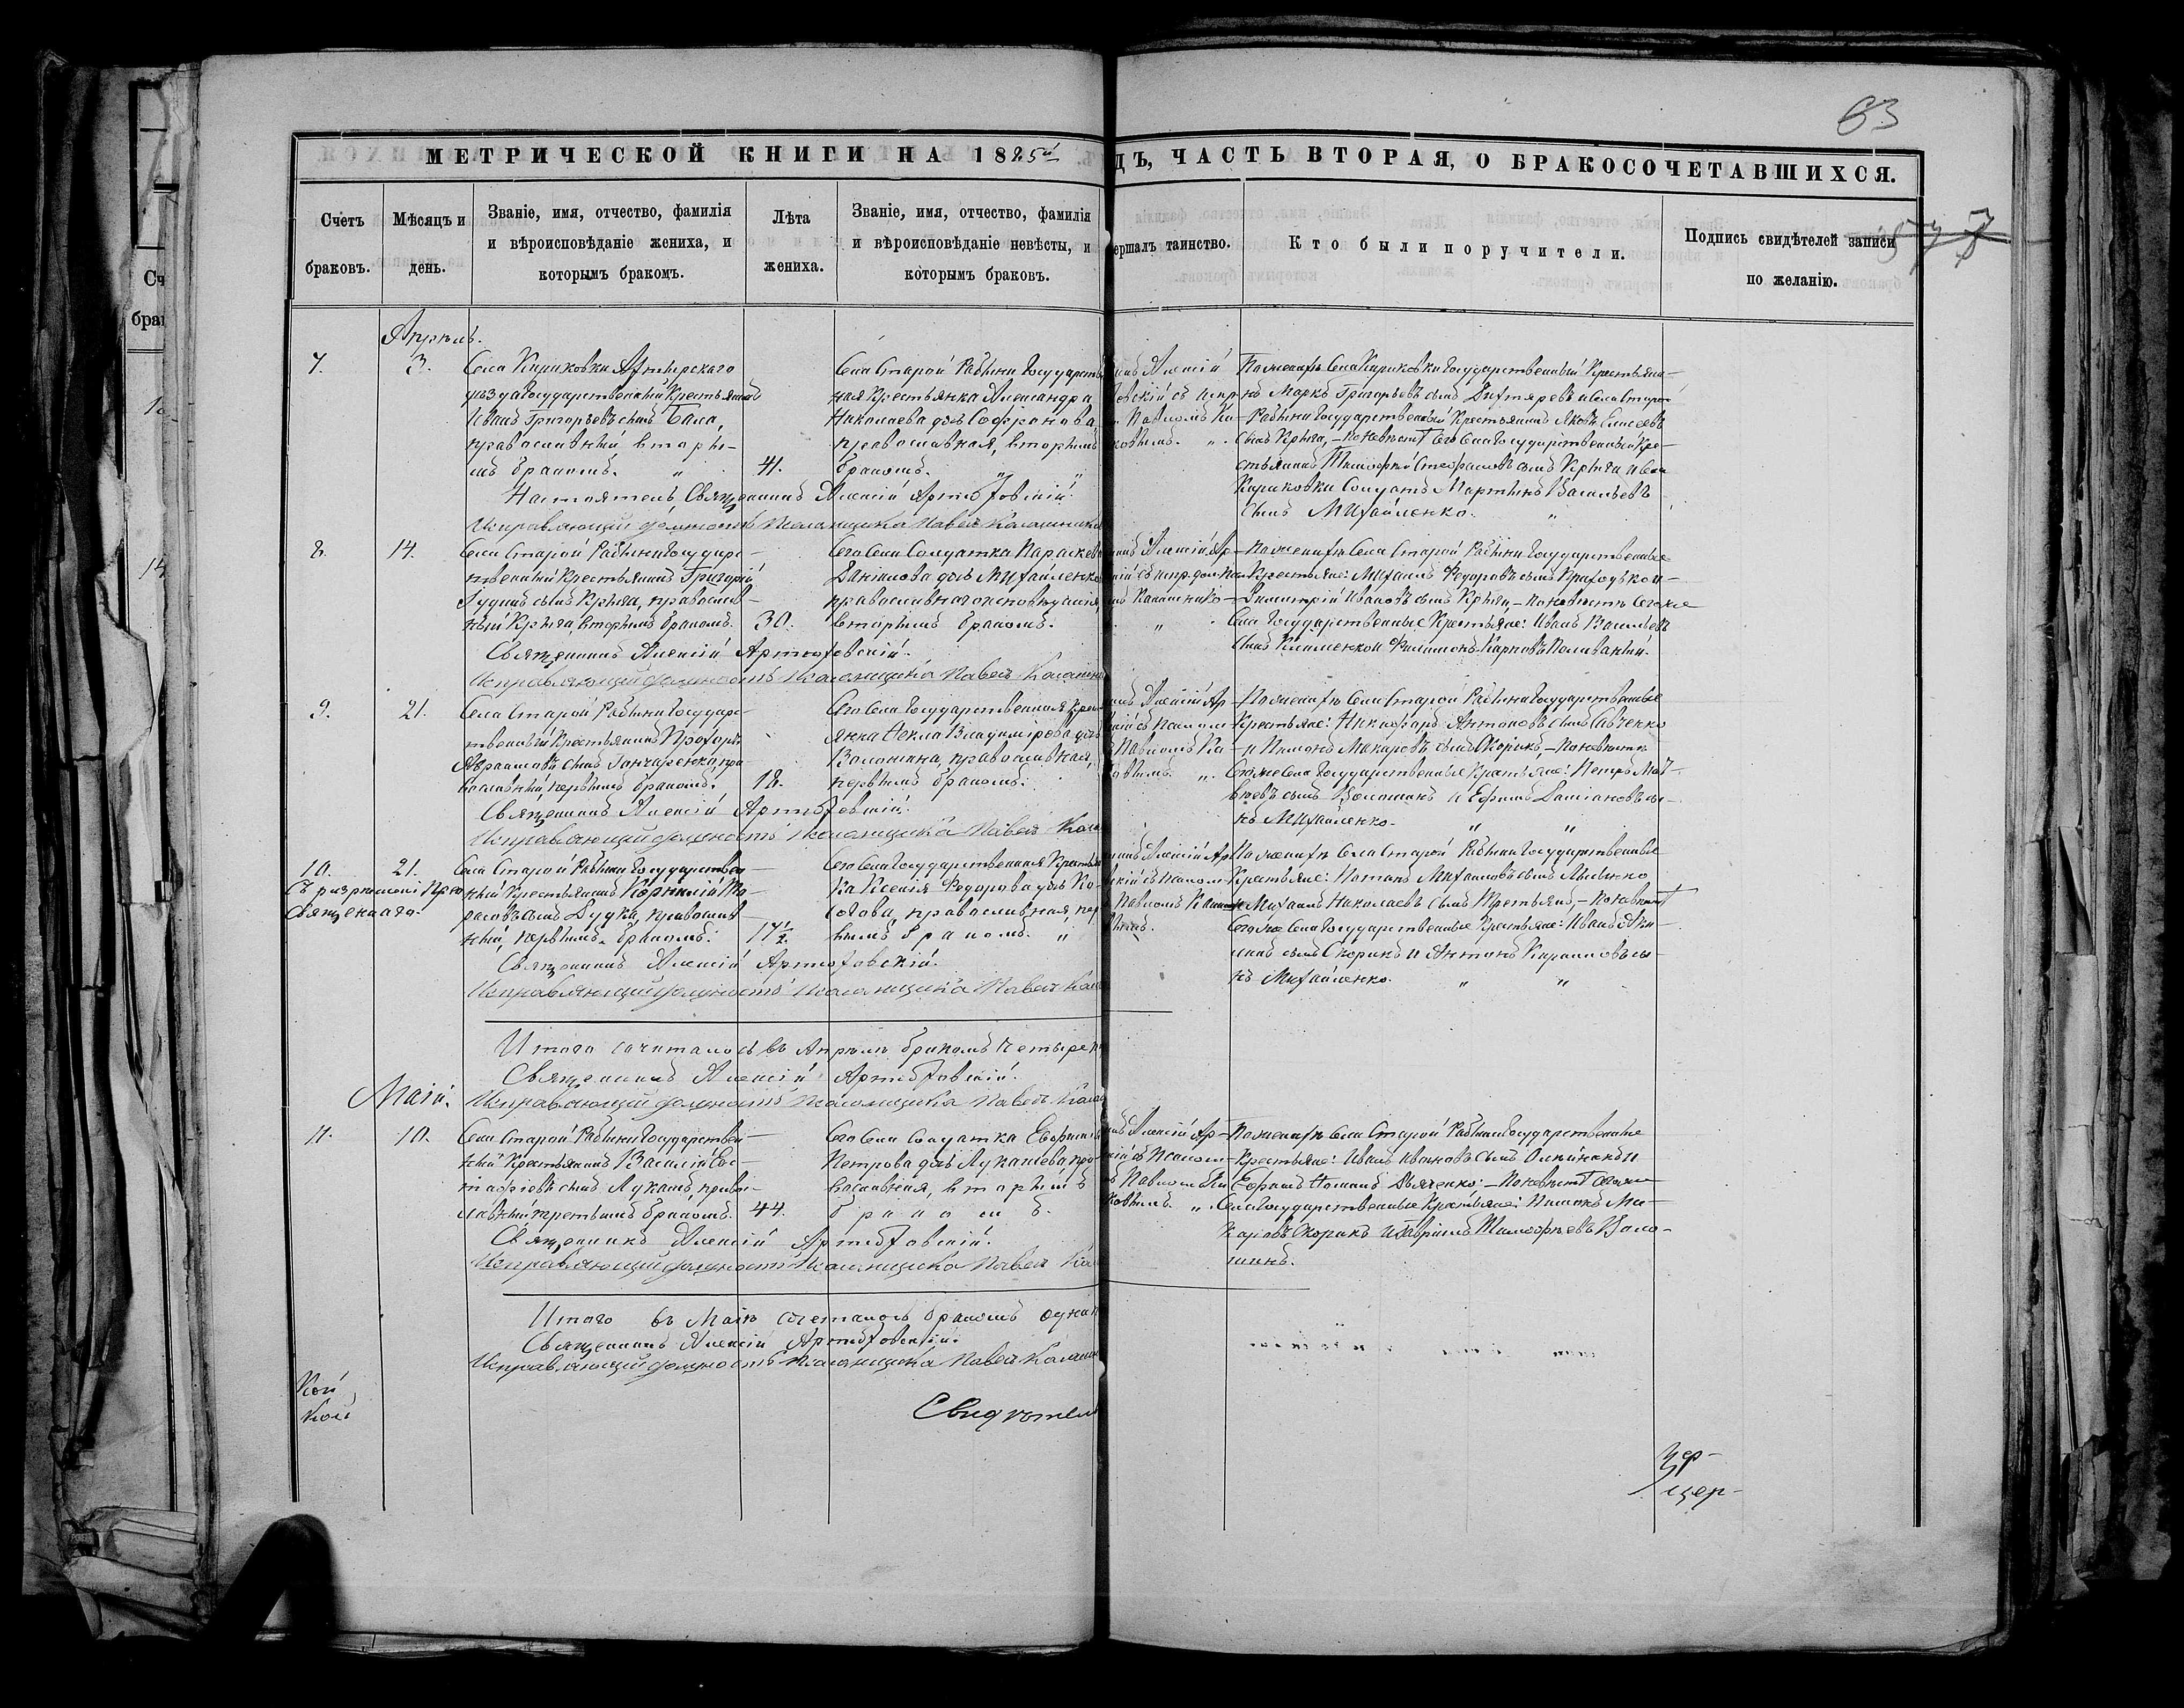 63
МЕТРИЧЕСКОЙ КНИГИ НА 1885й
ДЪ, ЧАСТЬ ВТОРАЯ, О БРАКОСОЧЕТАВШИХСЯ.
Счетъ браковъ.
Мѣсяцъ и день.
Званіе, имя, отчество, фамилія
и вѣроисповѣданіе жениха, и
которымъ бракомъ.
Лѣта
жениха.
Званіе, имя, отчество, фамилія
и вѣроисповѣданіе невѣсты, и
которымъ браковъ.
ершалъ таинство.
Кто были поручители.
Подпись свидѣтелей записи
по желанію.
Апрѣль.
7.
3.
Села Кириковки Ахтырскаго
уѣзда Государственный Крестьянинъ
Иванъ Григорьевъ сынъ Бала,
православный, вторы-
мъ бракомъ.
41.
Села Старой Рябины Государствен
ная Крестьянка Александра
Николаева дочь Софронова,
православная, вторымъ
бракомъ.
Алексій
Павломъ Ка
По женихѣ Села Кириковки Государственный Крестьяни-
нъ Маркъ Григорьевъ сынъ Дихтяревъ и Села Старой
Рабины Государственный Крестьянинъ Яковъ Елисеевъ
сынъ Крыга, - по невѣстѣ Сего Села Государственный Кре-
стьянинъ Тимофей Стефановъ сынъ Крыга и Села
Кириковки Солдатъ Мартынъ Васильевъ
сынъ Михайленко.
Настоятель, Священникъ Алексій Артюховскій.
Исправляющій должность Псаломщика Павелъ Калашник
8.
14.
Села Старой Рабины Государс-
твенный Крестьянинъ Григорій
Іудинъ сынъ Крыга, православ-
ный Крыга, вторымъ бракомъ.
30.
Сего Села Солдатка Параскева
Даніилова дочь Михайленко
православного исповѣданія,
вторымъ бракомъ.
Алексій Ар-
По женихѣ Села Старой Рабины Государственные
Крестьяне: Михаилъ Федоровъ сынъ Приходько и
Димитрій Ивановъ сынъ Крыга, - по невѣстѣ Сего же
Села Государственные Крестьяне: Иванъ Васильевъ
сынъ Клименко и Филимонъ Карповъ Поливаный.
Священникъ Алексій Артюховскій.
Исправляющій должность Псаломщика Павелъ Калашн
9.
21.
Села Старой Рабины Государс-
твенный Крестьянинъ Прохоръ
Авраамовъ сынъ Гончаренко, пра
вославный, первымъ бракомъ.
18.
Сего Села Государственная Крес
янка Текла Владимірова дочь
Волошина, православная,
первымъ бракомъ.
Алексій Ар-
Павломъ Ка-
По женихѣ Села Старой Рабины Государственные
Крестьяне: Никифоръ Антоновъ сынъ Савченко
и Пименъ Макаровъ сынъ Скорикъ, - по невѣстѣ
Сего же Села Государственные Крестьяне: Петръ Мат-
вѣевъ сынъ Волошинъ и Ефимъ Даніиловъ сы-
нъ Михайленко.
Священникъ Алексій Артюховскій.
Исправляющій должность Псаломщика Павелъ Кала
10.
21.
Съ разрѣшенія Прео
священнаго.
Села Старой Рабины Государствен
ный Крестьянинъ Корнилій Та-
расовъ сынъ Дудка, православ-
ный, первымъ бракомъ.
17½.
Сего Села Государственная Крестьян
ка Ксенія Федорова дочь Ко-
согова, православная, пер
вымъ бракомъ.
Алексій Ар
Павломъ Калаш
По женихѣ Села Старой Рабины Государственные
Крестьяне: Потапъ Михайловъ сынъ
и Михаилъ Николаевъ сынъ Третьякъ, - По невѣстѣ
Сего же Села Государственные Крестьяне: Иванъ Аки-
мовъ сынъ Скорикъ и Антонъ Кириловъ сы-
нъ Михайленко.
Священникъ Алексій Артюховскій.
Исправляющій должность Псаломщика Павелъ Кала
Итого сочиталось въ Апрѣлѣ бракомъ четыре п
Священникъ Алексій Артюховскій.
Исправляющій должность Псаломщика Павелъ Кала
Маій.
11.
10.
Села Старой Рабины Государствен-
ный Крестьянинъ Василій Евс-
тафіевъ сынъ Лукашъ, право-
славный, третьимъ бракомъ.
44.
Сего Села Солдатка Евфимія
Петрова дочь Лукашева, пра-
вославная, вторымъ
бракомъ.
Алексій Ар-
Павломъ Ка
По женихѣ Села Старой Рабины Государственные
Крестьяне: Иванъ Ивановъ сынъ Олейникъ и
Ефимъ Потапъ Дьяченко. - По невѣстѣ Сего же
Села Государственные Крестьяне: Пименъ Ма-
каровъ Скорикъ и Гавріилъ Тимофѣевъ Воло-
шинъ.
Священникъ Алексій Артюховскій.
Исправляющій должность Псаломщика Павелъ Ка
Итого въ Маіѣ сочеталось бракомъ одна п
Священникъ Алексій Артюховскій.
Исправляющій должность Псаломщика Павелъ Калаш
Свидѣтель
цер-